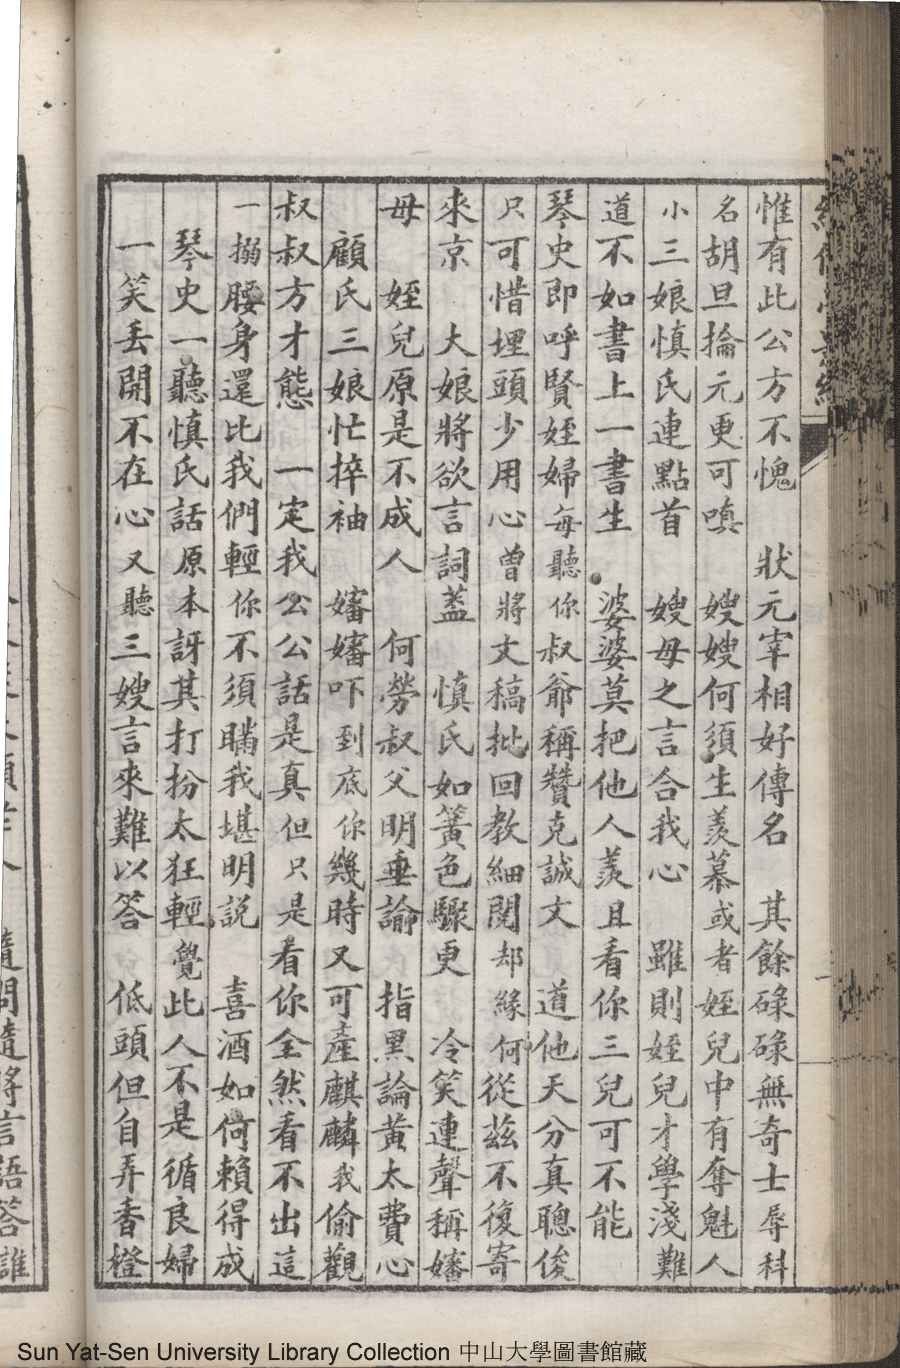 惟有此公方不愧　狀元宰相好傳名　其餘碌碌無奇士辱科
名胡旦掄元更可嗔　嫂嫂何須生羨慕或者姪兒中有奪魁人
小三娘慎氏連點首　嫂母之言合我心　雖則姪兒才學淺難
道不如書上一書生　婆婆莫把他人羨且看你三兒可不能
琴史即呼賢姪婦每聽你叔爺稱贊克誠文　道他天分真聰俊
只可惜埋頭少用心曾將文稿批回教細閱却緣何從茲不復寄
來京　大娘將欲言詞葢　慎氏如簧色驟更　冷笑連聲稱嬸
母　姪兒原是不成人　何勞叔父明垂諭　指黑論黃太費心
顧氏三娘忙捽袖　嬸嬸吓到底你幾時又可產麒麟我偷觀
叔叔方才態　一定我公公話是真但只是看你全然看不出這
一搦腰身還比我們輕你不須瞞我堪明說　喜酒如何賴得成
琴史一聽慎氏話原本訝其打扮太狂輕覺此人不是循良婦
一笑丟開不在心又聽三嫂言來難以答　低頭但自弄香橙
隨問隨將言語答誰
Sun Yat-Sen University Library Collection 中山大學圖書館藏